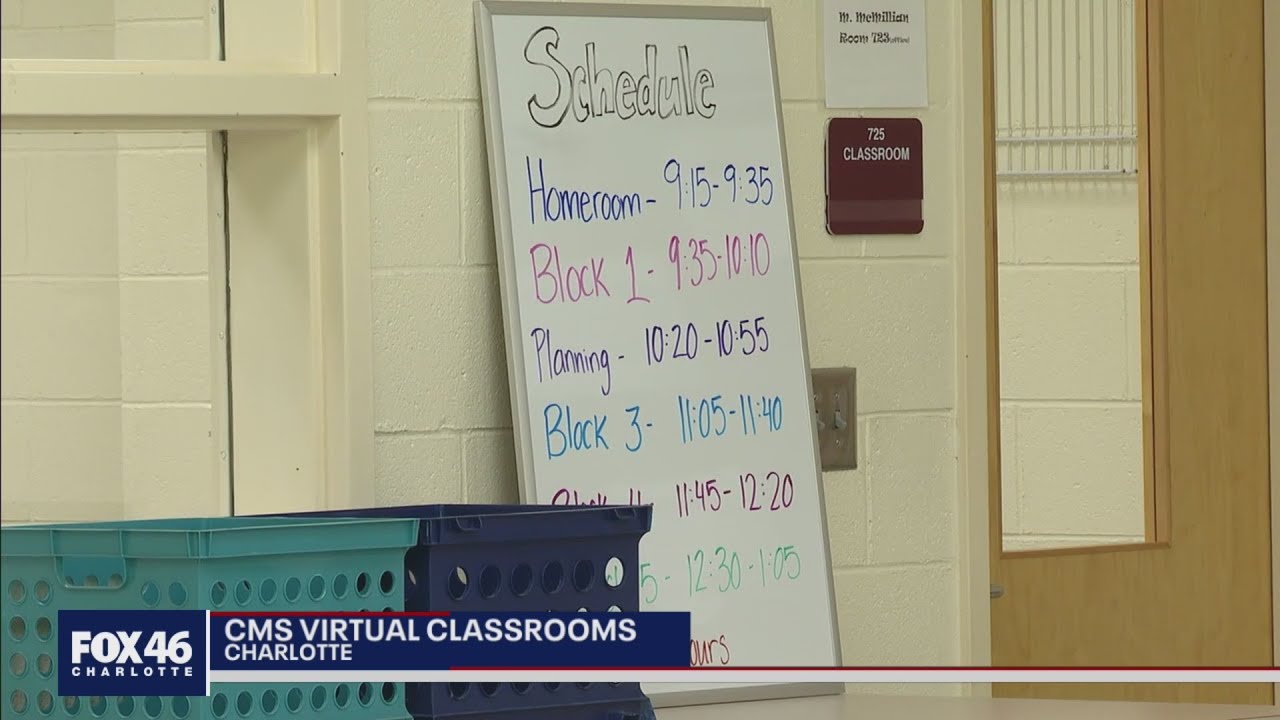 Schedule
Homeroom - 9:15-9:35
Block 1 - 9:35-10:10
Planning - 10:20-10:55
Block 3 - 11:05-11:40
11:45-12:20
5 - 12:30-1:05
M. McMillian
Room 723
725
CLASSROOM
FOX 46
CHARLOTTE
CMS VIRTUAL CLASSROOMS
CHARLOTTE